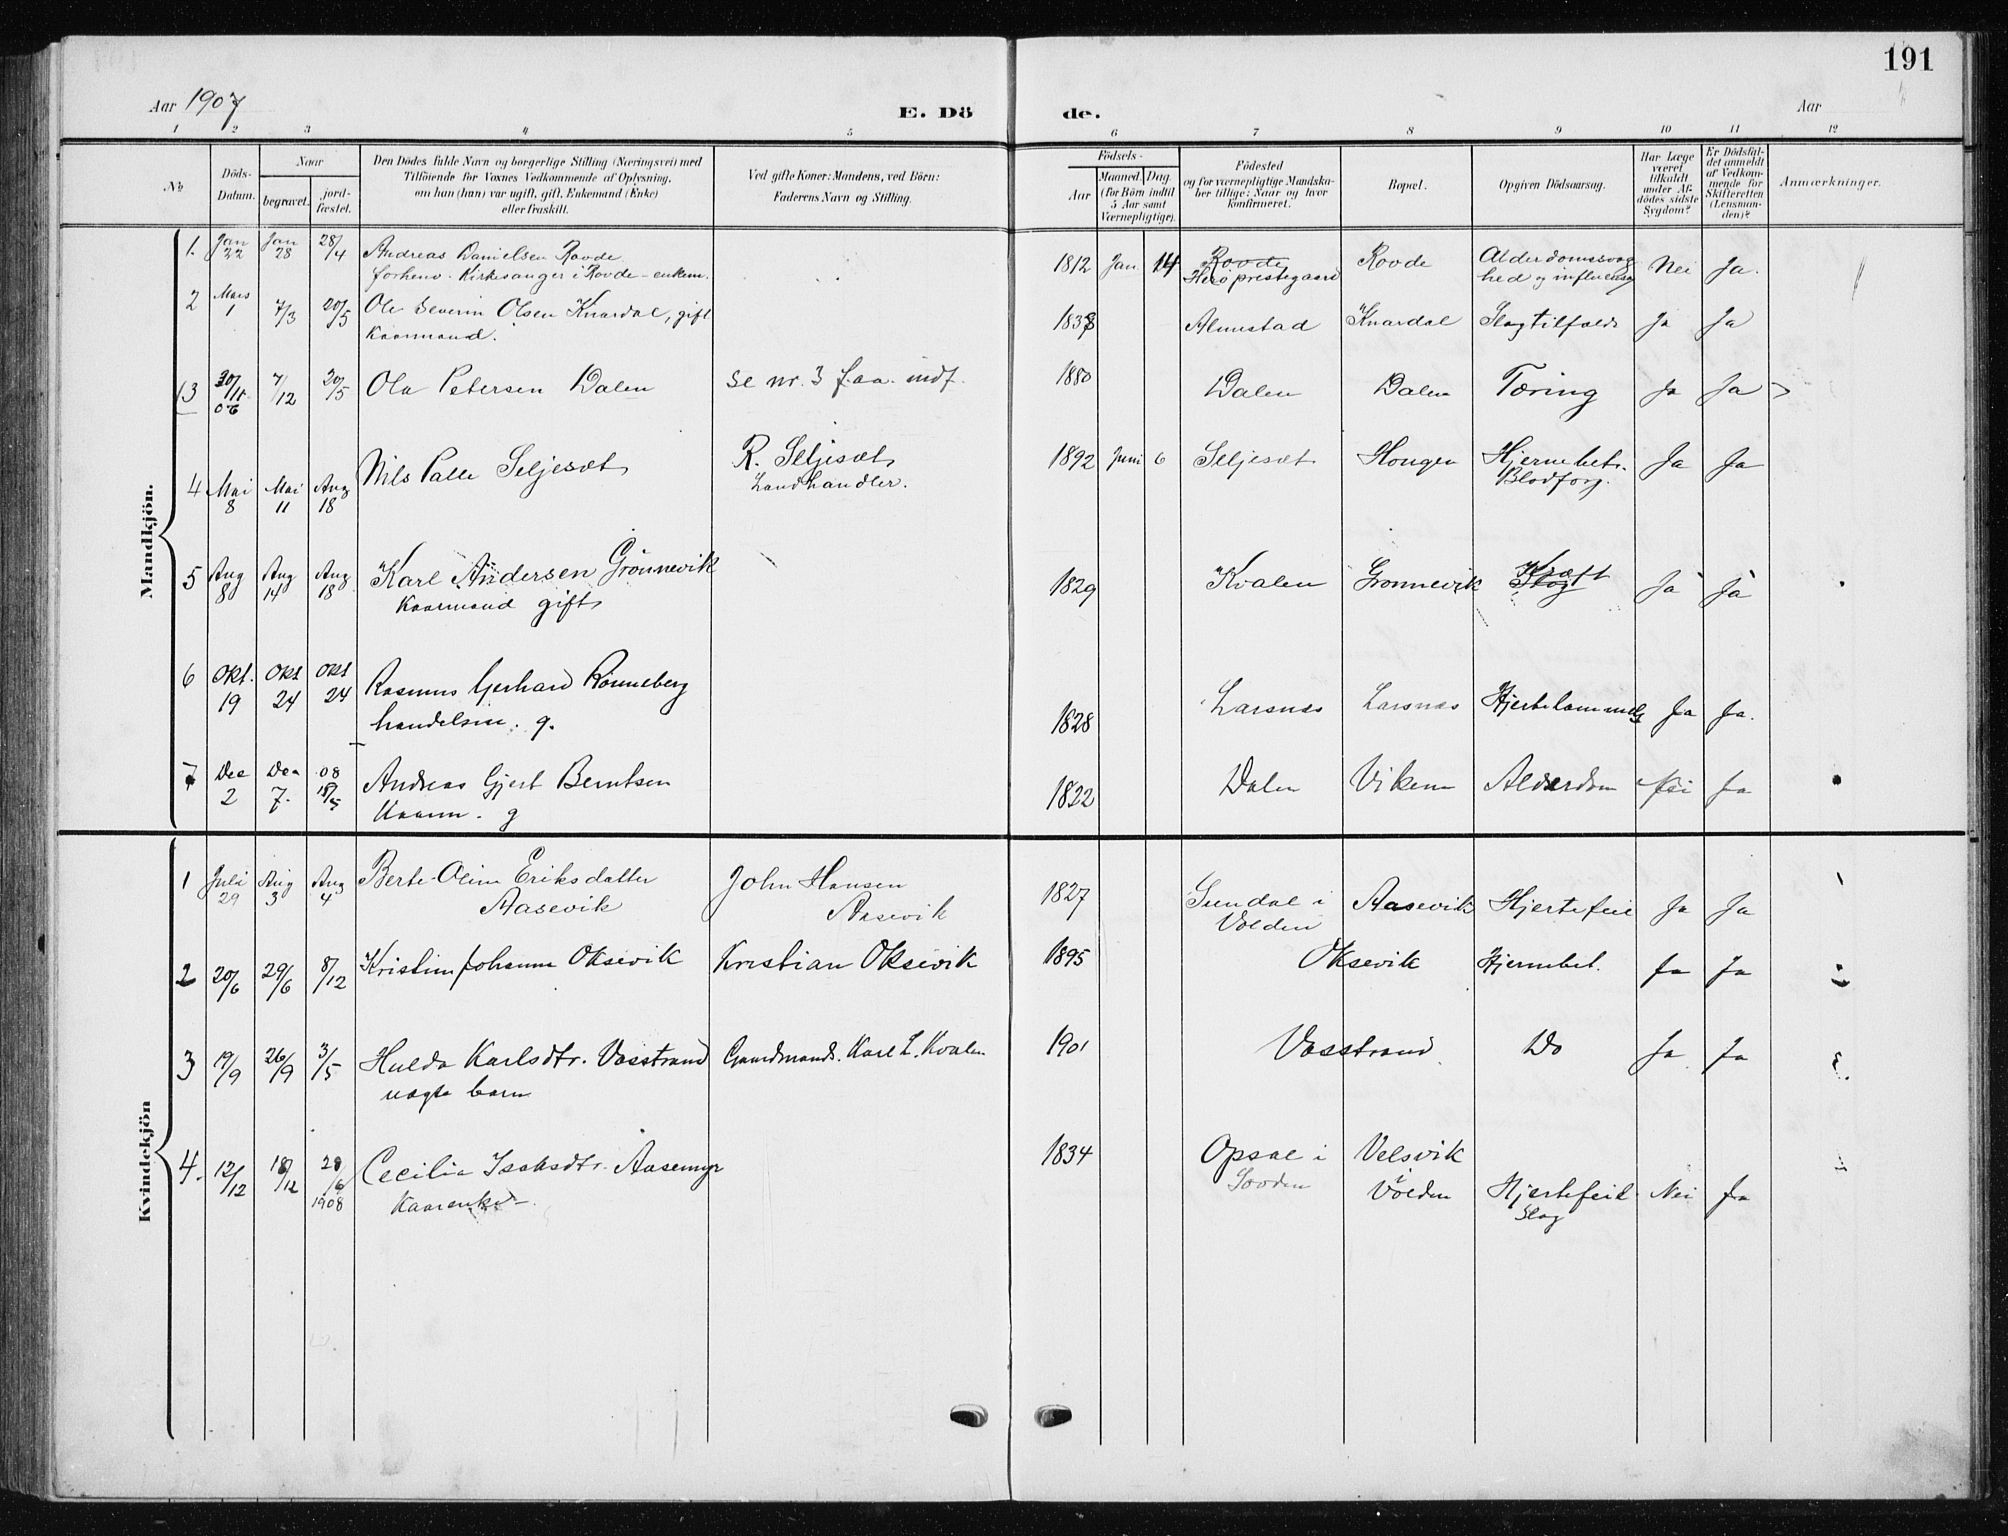 191
Aar 1907
E. Dö de.
Aar
1 2 3 4 5 6 7 8 9 10 11 12
No
Döds-Datum.
Naar
begravet.
jord-fæstet.
Den Dödes fulde Navn og borgerlige Stilling (Næringsvei) med
Tilföiende for Voxnes Vedkommende af Oplysning,
om han (hun) var ugift, gift, Enkemand (Enke)
eller fraskilt.
Ved gifte Koner: Mandens, ved Börn:
Faderens Navn og Stilling.
Födsels-
Aar
Maaned. Dag.
(for Börn indtil
5 Aar samt
Værnepligtige).
Födested
og for værnepligtige Mandska-
ber tillige: Naar og hvor
konfirmeret.
Bopæl.
Opgiven Dödsaarsag.
Har Læge
været
tilkaldt
under Af-
dödes sidste
Sygdom?
Er Dödsfal-
det anmeldt
af Vedkom-
mende for
Skifteretten
(Lensman-
den)?
Anmærkninger.
Mandkjön.
1. Jan 22 Jan 28 28/4 Andreas Danielsen Rovde 1812 Jan. 14 Rovde Rovde Alderdomssvag Nei Ja.
forhenv. Kirkesanger i Rovde - enkem. Herö prestegaard hed og influensa
2 Mars 1 7/3 20/5 Ole Severin Olsen Knardal, gift 1838 Almestad Knardal Slagtilfælde Ja Ja
Kaarmand.
3 30/11 06 7/12 20/5 Ola Petersen Dalen se nr. 3 f.aa. indf. 1880 Dalen Dalen Tæring Ja Ja
4 Mai 8 Mai 11 Aug 18 Nils Palle Seljesæt R. Seljesæt, 1892 Juni 6 Seljesæt Hongen Hjernebet. Ja Ja
Landhandler. Blodforg.
5 Aug 8 Aug 14 Aug 18 Karl Andersen Grönnevik 1829 Kvalen Grönnevik Kræft Ja Ja
Kaarmand gift
6 Okt. 19 Okt 24 Okt 24 Rasmus Gerhard Rönneberg 1828 Larsnæs Larsnæs Hjertelammelse Ja Ja.
handelsm. g.
7 Dec 2 Dec 7. 08 18/5 Andreas Gjert Berntsen 1822 Dalen Viken Alderdom Nei Ja
Kaarm. g
Kvindekjön
1 Juli 29 Aug 3 Aug 4 Berte Oline Eriksdatter John Hansen 1827 Sundal i Aasevik Hjertefeil Ja Ja
Aasevik Aasevik Volden
2 20/6 29/6 8/12 Kristine Johanne Oksevik Kristian Oksevik 1895 Oksevik Hjernebet. Ja Ja
3 19/9 26/9 3/5 Hulda Karlsdtr. Vasstrand Gaardmand. Karl L. Kvalen 1901 Vasstrand Do Ja Ja
uægte barn
4. 12/12 18/12 28/6 1908 Cecilia Isaksdtr. Aasemyr 1834 Opsal i Velsvik
Kaarenke Sovden i Volden Hjertefeil Nei Ja
Slag